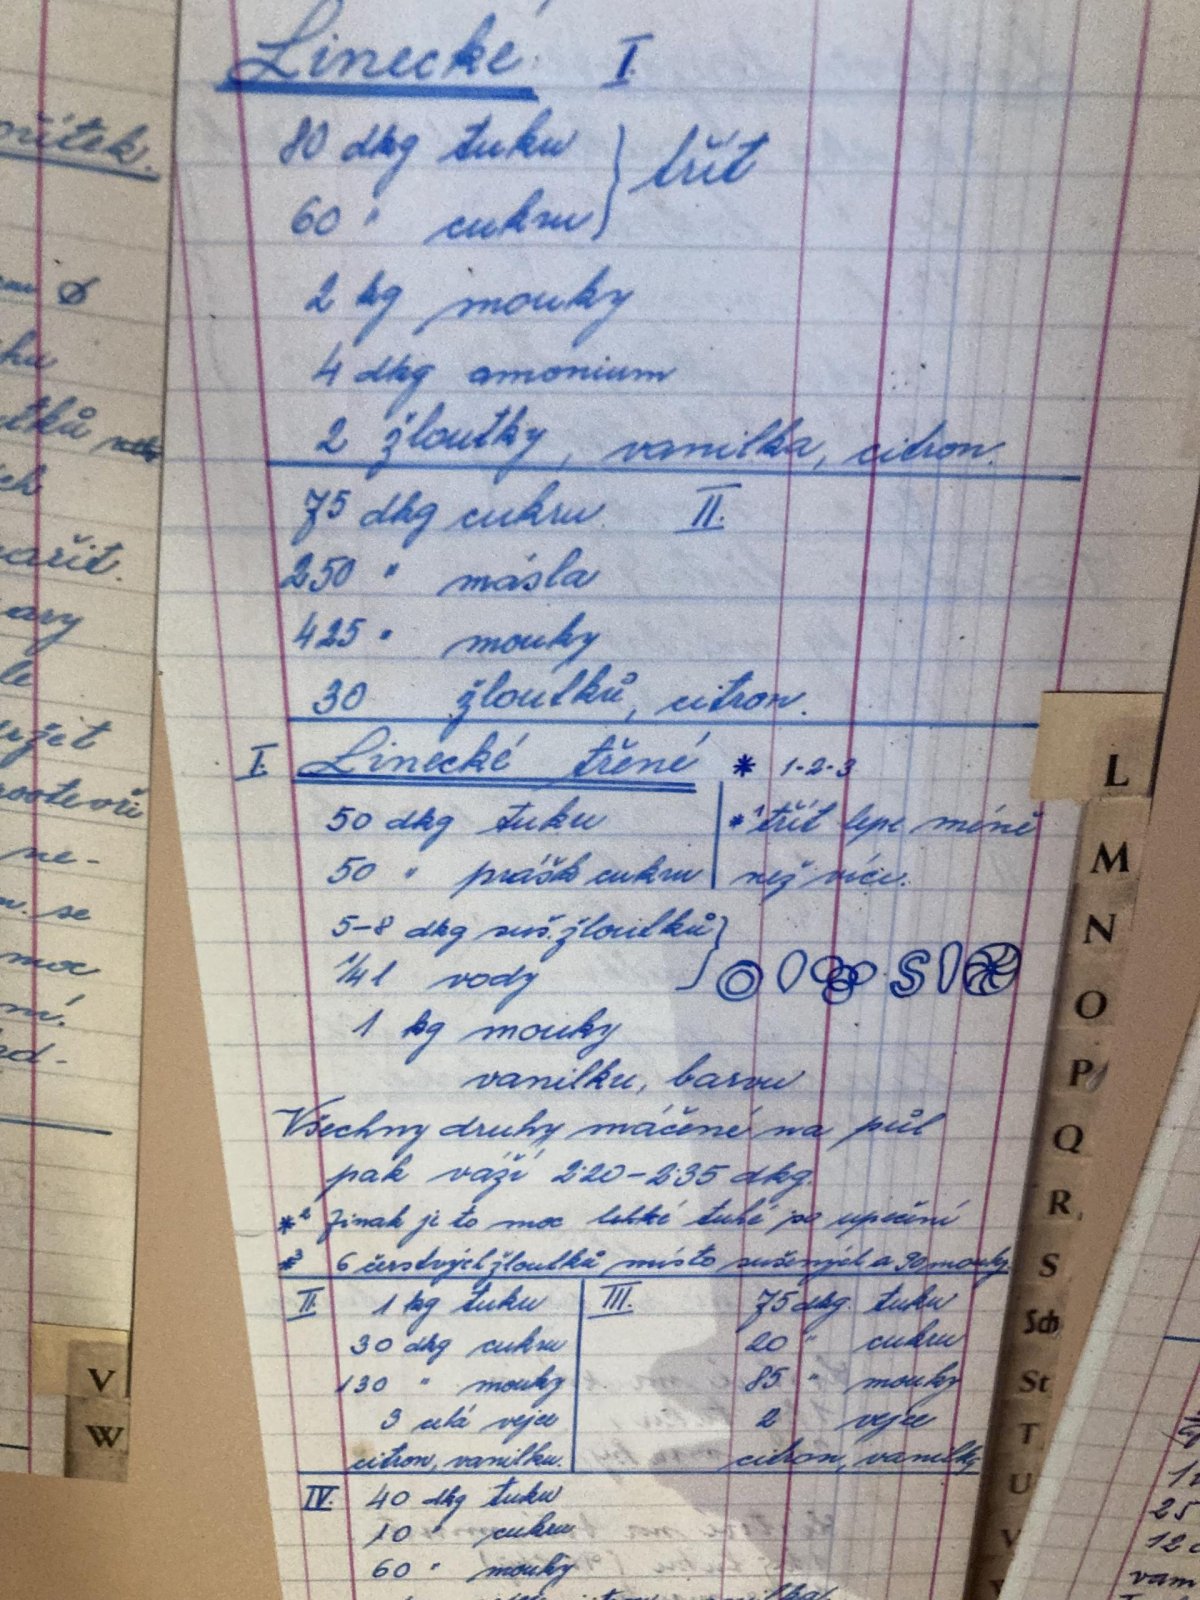 Linecké I.
80 dkg tuku } třít
60 " cukru
2 kg mouky
4 dkg amonium
2 žloutky, vanilka, citron.
75 dkg cukru II.
250 " másla
425 " mouky
30 žloutků, citron.
I. Linecké třené * 1-2-3
50 dkg tuku *1 třít lépe méně
50 " prášk cukru než více.
5-8 dkg suš. žloutků }
1/4 l vody
1 kg mouky
vanilku, barvu
Všechny druhy máčené na půl
pak váží 2·20-2·35 dkg.
*2 Jinak je to moc lehké tuhé po upečení
*3 6 čerstvých žloutků místo sušených a 90 mouky
II. 1 kg tuku
30 dkg cukru
130 " mouky
3 celá vejce
citron, vanilku.
III. 75 dkg. tuku
20 " cukru
85 " mouky
2 vejce
citron, vanilk
IV. 40 dkg tuku
10 " cukru
60 " mouky
ařit.
ne-
se
moc
L
M
N
O
P
Q
R
S
Sch
St
T
U
V
V
W
25